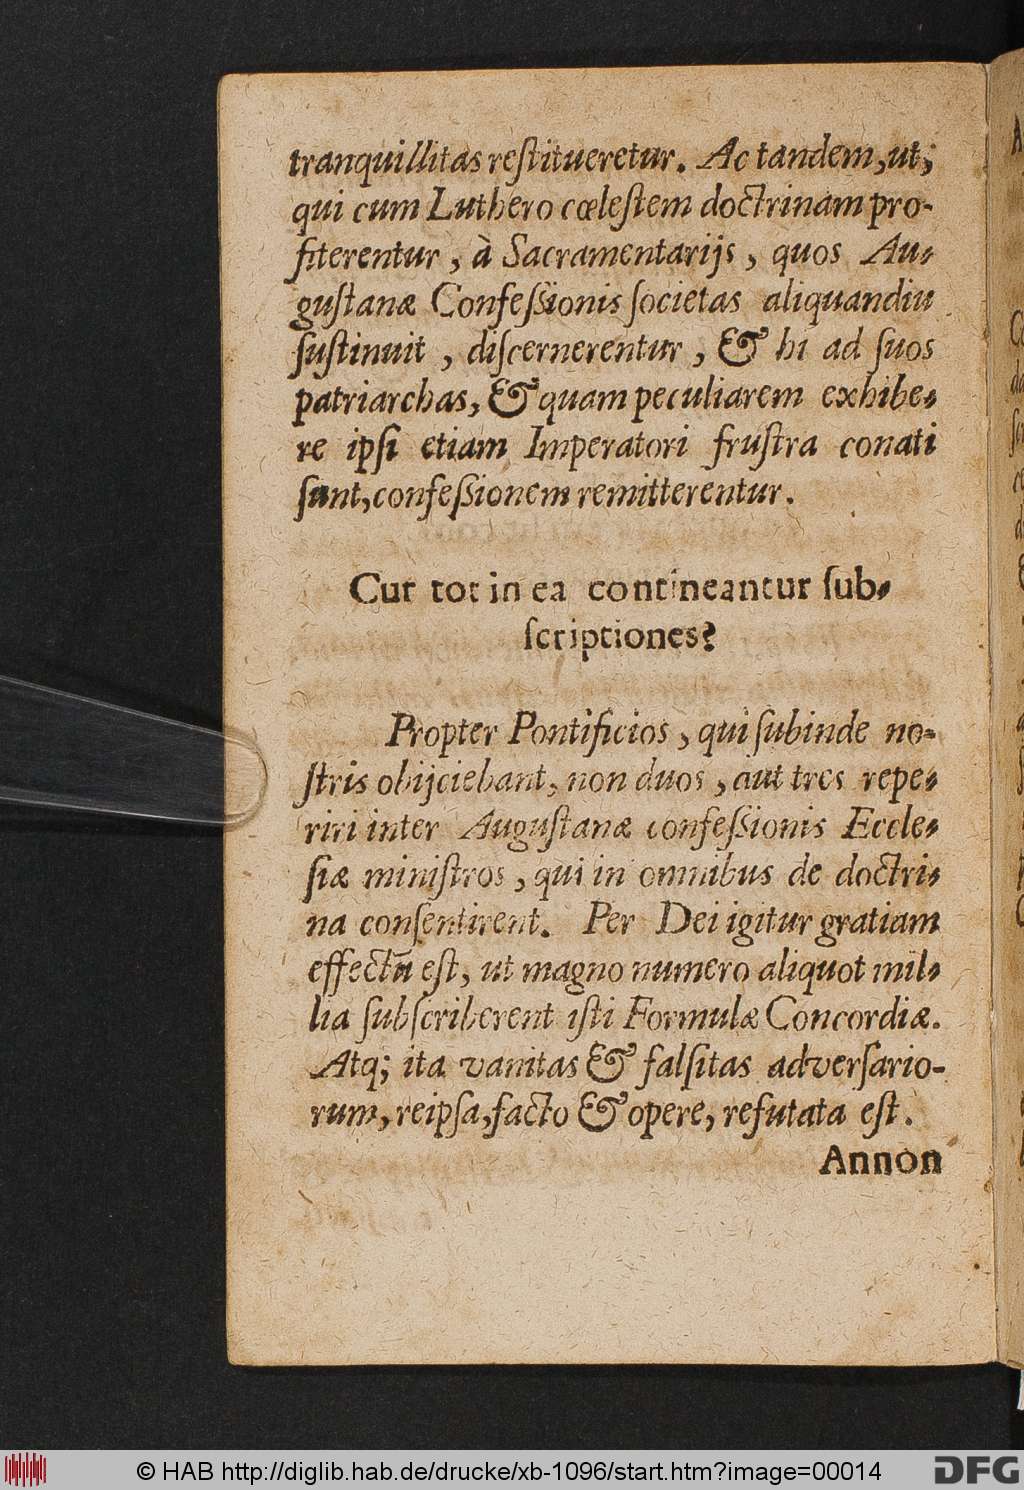 tranquillitas reſtitueretur. Ac tandem, ut,
qui cum Luthero cœleſtem doctrinam pro-
fiterentur, à Sacramentarijs, quos Au-
guſtanæ Confeßionis ſocietas aliquandiu
ſuſtinuit, diſcernerentur, & hi ad ſuos
patriarchas, & quam peculiarem exhibe-
re ipſi etiam Imperatori fruſtra conati
ſunt, confeßionem remitterentur.
Cur tot in ea contineantur ſub-
ſcriptiones?
Propter Pontificios, qui ſubinde no-
ſtris obijciebant, non duos, aut tres repe-
riri inter Auguſtanæ confeßionis Eccle-
ſiæ miniſtros, qui in omnibus de doctri-
na conſentirent. Per Dei igitur gratiam
effectũ eſt, ut magno numero aliquot mil-
lia ſubſcriberent iſti Formulæ Concordiæ.
Atq; ita vanitas & falſitas adverſario-
rum, reipſa, facto & opere, refutata eſt.
Annon
© HAB http://diglib.hab.de/drucke/xb-1096/start.htm?image=00014
DFG